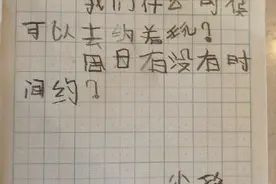 我们什么时候
可以去约差玩?
周日有没有时
间约?
小